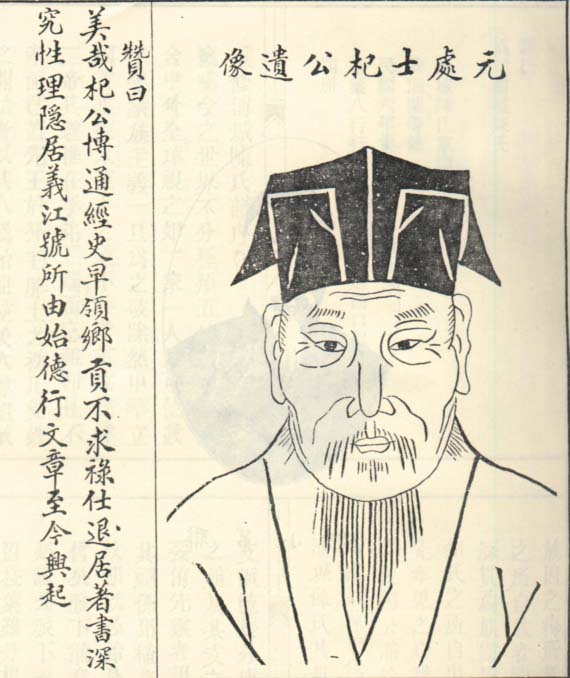 元處士杞公遺像
贊曰
美哉杞公博通經史早領鄉貢不求祿仕退居著書深
究性理隱居義江號所由始德行文章至今興起